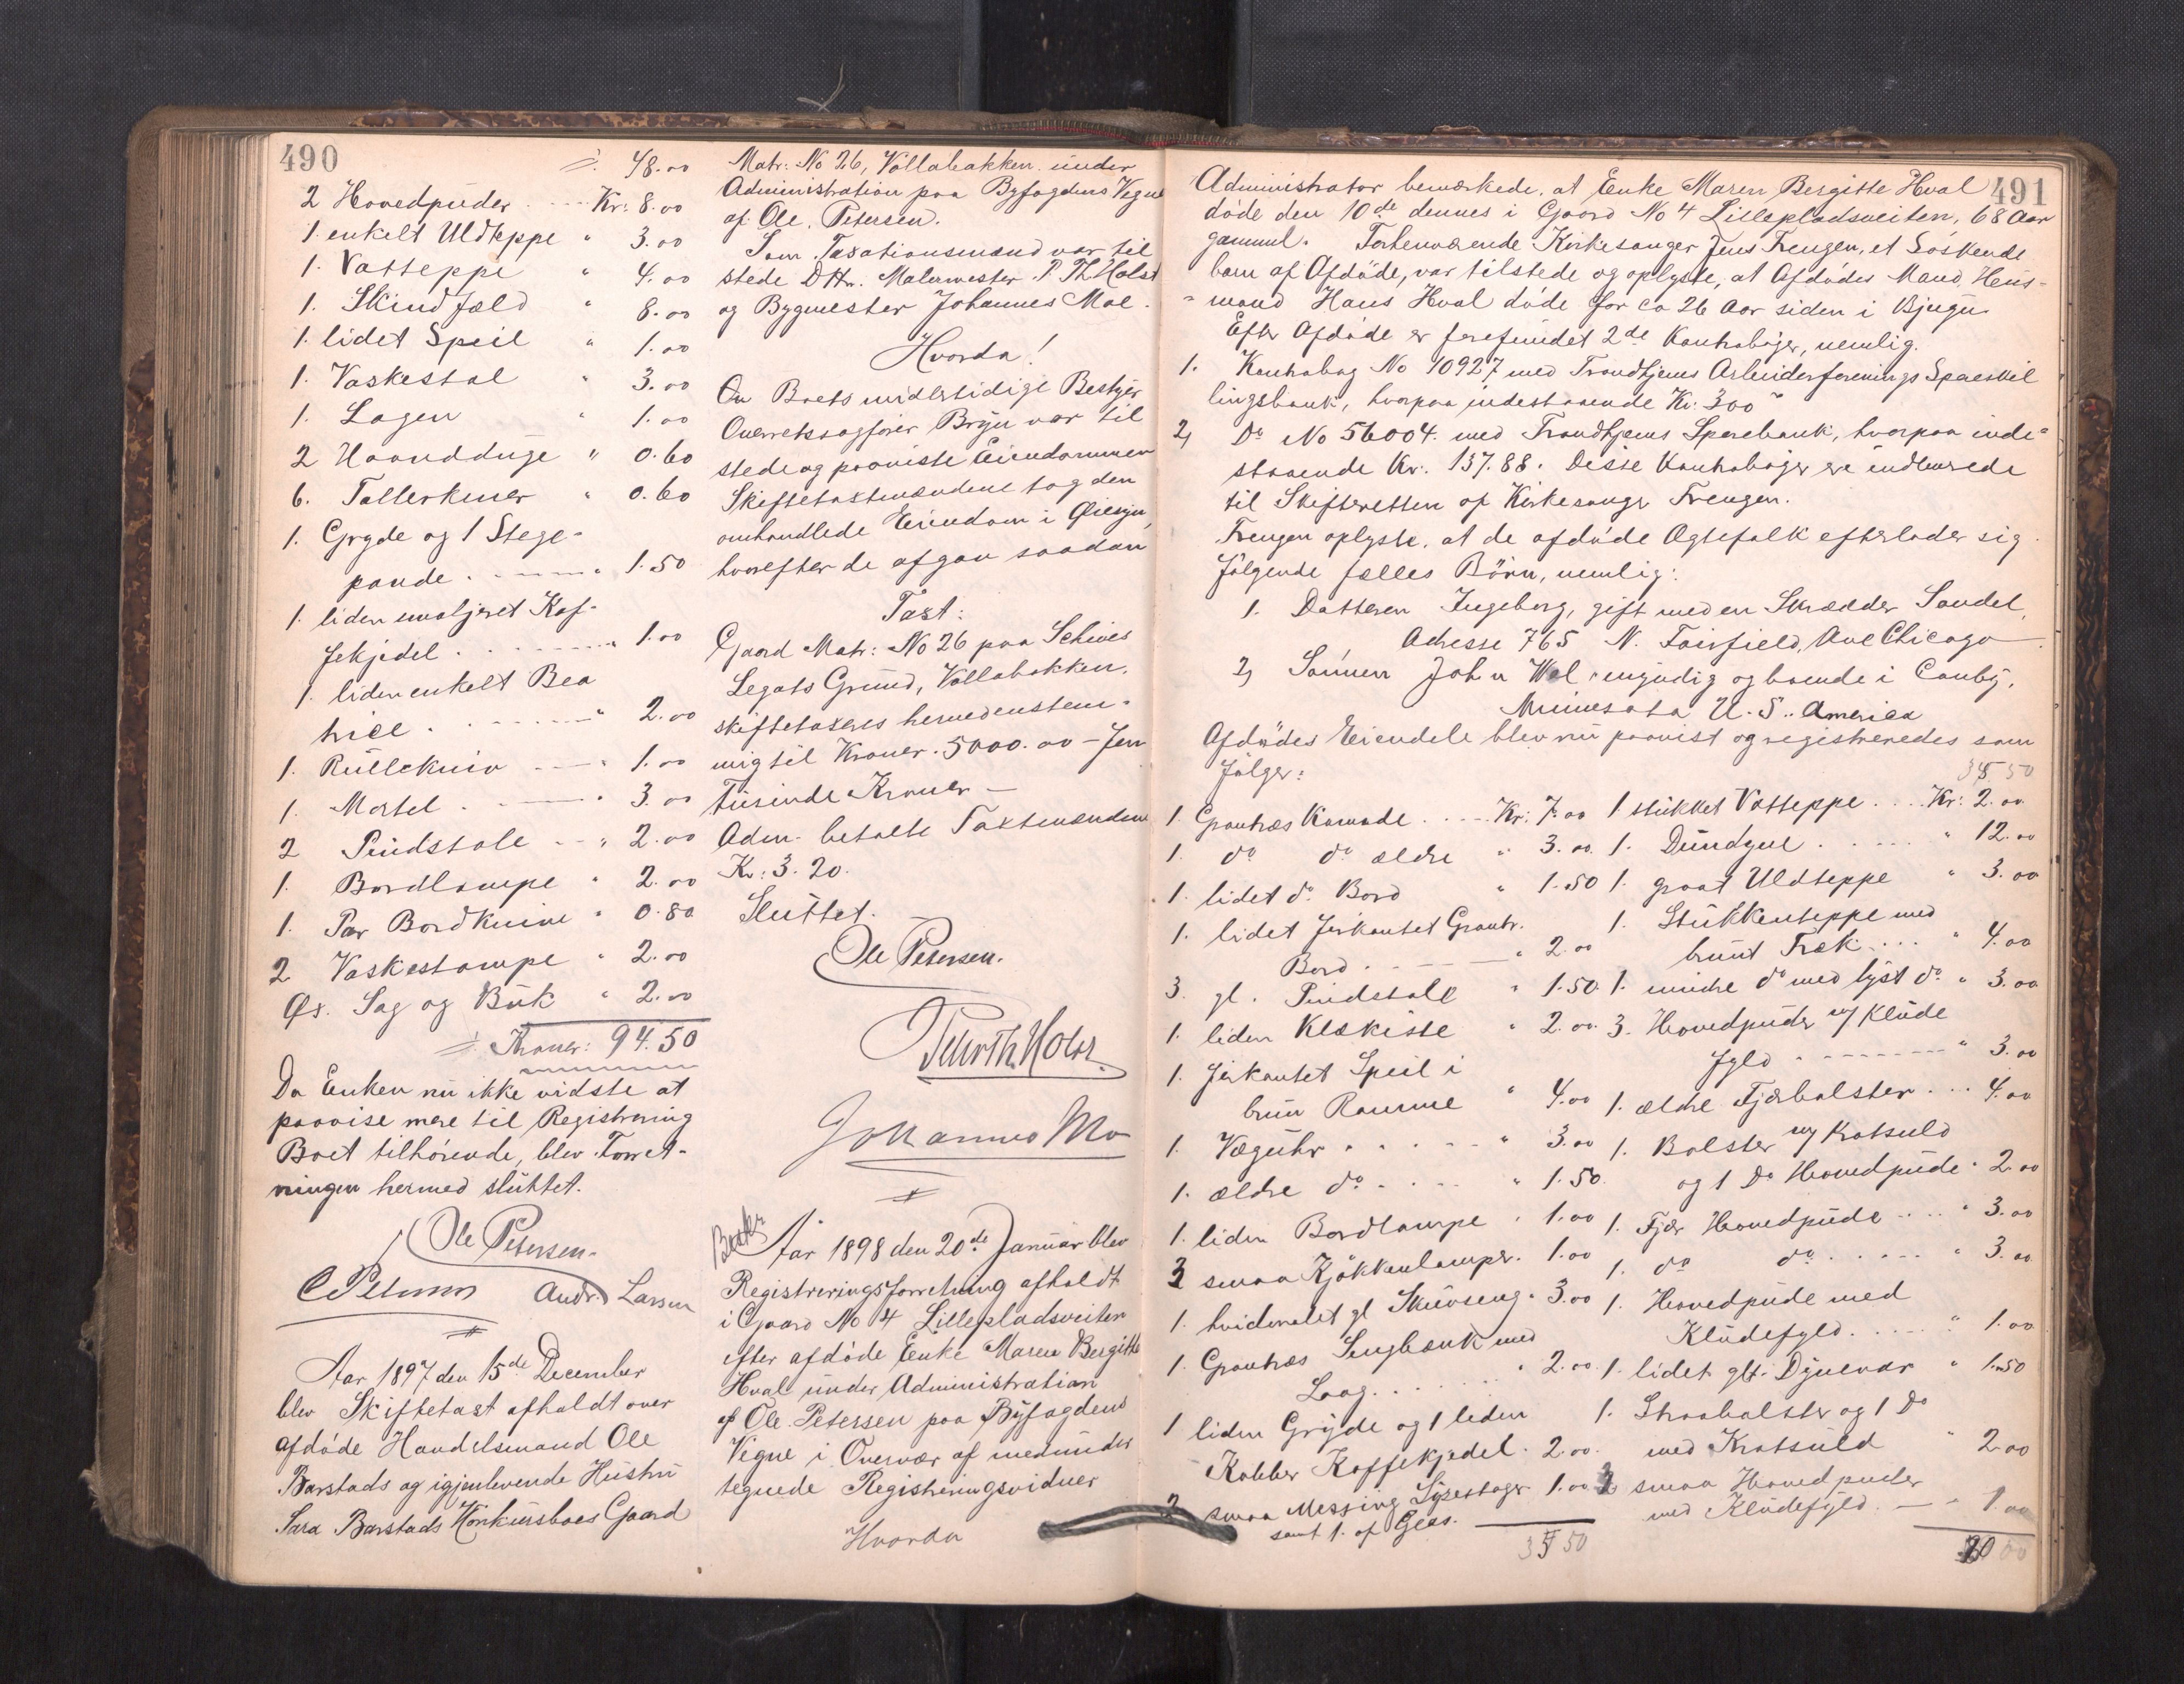 490
÷ 48.00
2 Hovedpuder . . Kr: 8.00
1. enkelt Uldteppe " 3.00
1. Vatteppe " 4.00
1. Skindfæld " 8.00
1. lidet Speil " 1.00
1. Vaskestol " 3.00
1. Lagen " 1.00
2 Haandduge " 0.60
6. Tallerkener " 0.60
1. Gryde og 1 Stege-
pande . . . " 1.50
1. liden emaljeret Kaf-
fekjedel . . . " 1.00
1. liden enkelt Bea
trice . . . " 2.00
1. Rullekniv . . " 1.00
1. Mortel . . . " 3.00
2 Pindstole . . " 2.00
1. Bordlampe " 2.00
1. Par Bordknive " 0.80
2 Vaskestampe " 2.00
Øx. Sag og Buk " 2.00
÷ Kroner: 94.50
Da Enken nu ikke vidste at
paavise mere til Registrering
Boet tilhørende, blev Forret-
ningen hermed sluttet.
Ole Petersen.
C Petersen Andr. Larsen
Aar 1897 den 15de December
blev Skiftetaxt afholdt over
afdøde Handelsmand Ole
Barstads og igjenlevende Hustru
Sara Barstads Konkursboes Gaard
Matr: No 26, Vollabakken under
Administration paa Byfogdens Vegne
af Ole Petersen.
Som Taxationsmænd var til
stede DHr. Malermester P. Th. Holst
og Bygmester Johannes Moe.
Hvorda!
Boets midlertidige Bestyrer
Overretssagfører Bryn var til
stede og paaviste Eiendommen
Skiftetaxtmændene tog den
omhandlede Eiendom i Øiesyn,
hvorefter de afgav saadan
Taxt:
Gaard Matr: No 26 paa Schives
Legats Grund, Vollabakken,
skiftetaxeres hermed enstem-
mig til Kroner. 5000.00 – Fem
Tusinde Kroner –
Adm. betalte Taxtmændene
Kr: 3.20.
Sluttet.
Ole Petersen.
Peter Th. Holst.
Johannes Mo
Aar 1898 den 20de Januar blev
Registreringsforretning afholdt
i Gaard No 4 Lillepladsveiten
efter afdøde Enke Maren Bergitte
Hval under Administration
af Ole Petersen paa Byfogdens
Vegne i Overvær af medunder
tegnede Registreringsvidner
Hvorda
491
Administrator bemærkede, at Enke Maren Bergitte Hval
døde den 10de dennes i Gaard No 4 Lillepladsveiten, 68 Aar
gammel. Forhenværende Kirkesanger Jens Frengen, et Søskende
barn af Afdøde, var tilstede og oplyste, at Afdødes Mand, Hus-
=mand Hans Hval døde for ca 26 Aar siden i Bjugn.
Efter Afdøde er forefundet 2de Kontrabøger, nemlig.
1. Kontrabog No 10927 med Trondhjems Arbeiderforenings Spareskil
lingsbank, hvorpaa indestaaende Kr: 300
2, Do No 56004. med Trondhjems Sparebank, hvorpaa inde=
staaende Kr. 137.88. Disse Kontrabøger ere indleverede
til Skifteretten af Kirkesanger Frengen.
Frengen oplyste, at de afdøde Ægtefolk efterlader sig
følgende fælles Børn, nemlig:
1. Datteren Ingeborg, gift med en Skrædder Sandel,
Adresse 765 N. Fairfield, Ave Chicago
2, Sønnen John Wol, myndig og boende i Canby,
Minnesota U. S.. America
Afdødes Eiendele blev nu paavist og registreredes som
følger:
1. Grantræs Komode . . . Kr: 7.00
1. do do ældre " 3.00.
1. lidet do Bord " 1.50
1. lidet firkantet Grantr.
Bord . . . " 2.00
3. gl. Pindstole " 1.50.
1. liden Klækiste " 2.00.
1. firkantet Speil i
brun Ramme " 4.00
1. Væguhr . . . " 3.00
1. ældre do . . . " 1.50.
1. liden Bordlampe " 1.00
3 smaa Kjøkkenlamper. 1.00
1. hvidmalet gl Skuvseng " 3.00
1. Grantræs Sengbænk med
Laag . . . " 2.00.
1 liden Gryde og 1 liden
Kobber Kaffekjedel. 2.00.
2 smaa Messing Lysestager 1.00
samt 1. af Glas.
35 50
35 50
1 stukket Vatteppe . . . Kr: 2.00
1. Dundyne . . . " 12.00
1. graat Uldteppe " 3.00
1. Stukkenteppe med
brunt Træk . . . " 4.00
1. mindre do med lyst do " 3.00
3. Hovedpuder m/ Klude
fyld . . . " 3.00
1. ældre Fjærbolster . . . 4.00
1. Bolster m/ Krøtsuld
og 1 Do Hovedpude " 2.00
1. Fjær Hovedpude . . . " 3.00
1. do do . . . " 3.00
1. Hovedpude med
Kludefyld . . . " 1.00
1. lidet glt. Dynevar " 1.50
1. Straabolster og 1 Do
med Krøtsuld " 2.00
2 smaa Hovedpuder
med Kludefyld. — " 1.00